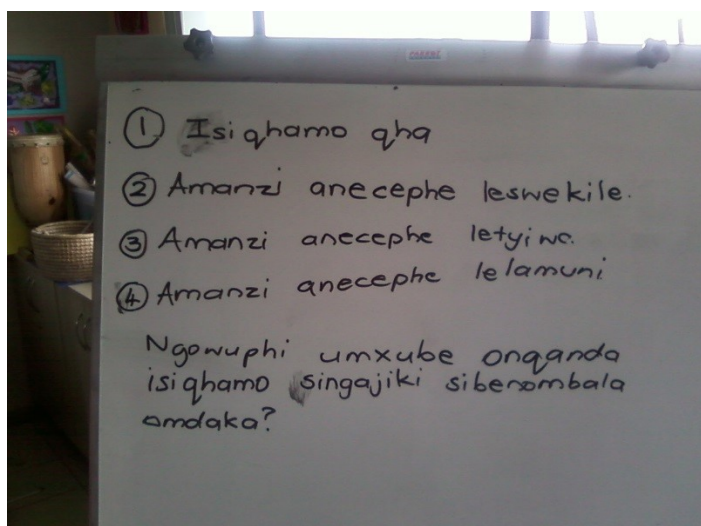 PARROT
① Isiqhamo qha
② Amanzi anecephe leswekile.
③ Amanzi anecephe letyiwa.
④ Amanzi anecephe lelamuni
Ngowuphi umxube onqanda
isiqhamo singajiki sibenombala
omdaka?